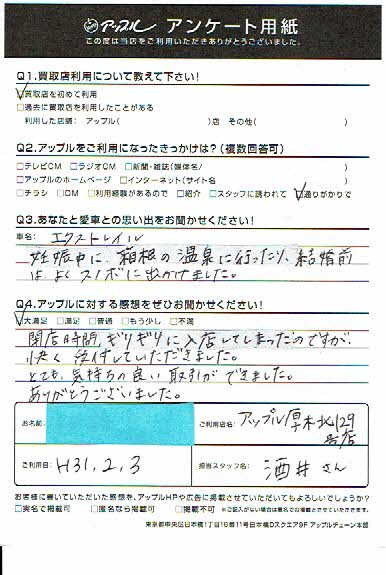 アップル アンケート用紙
この度は当店をご利用いただきありがとうございました。
Q1.買取店利用について教えて下さい!
☑買取店を初めて利用
□過去に買取店を利用したことがある
利用した店舗: アップル( )店 その他( )
Q2.アップルをご利用になったきっかけは?(複数回答可)
□テレビCM □ラジオCM □新聞・雑誌(媒体名/ )
□アップルのホームページ □インターネット(サイト名 )
□チラシ □DM □利用経験があるので □紹介 □スタッフに誘われて ☑通りがかりで
Q3.あなたと愛車との思い出をお聞かせください!
車名: エクストレイル
妊娠中に、箱根の温泉に行ったり、結婚前
は よく スノボに出かけました。
Q4.アップルに対する感想をぜひお聞かせください!
☑大満足 □満足 □普通 □もう少し □不満
閉店時間ギリギリに入店してしまったのですが、
快く受付していただきました。
とても、気持ちの良い取引ができました。
ありがとうございました。
お名前
ご利用店名: アップル厚木北129号店
ご利用日: H31.2.3
担当スタッフ名: 酒井さん
お客様に書いていただいた感想を、アップルHPや広告に掲載させていただいてもよろしいでしょうか?
□実名で掲載可 □匿名なら掲載可 □掲載不可 ※ご記入がない場合は匿名での掲載とさせていただきます。
東京都中央区日本橋1丁目16番11号日本橋Dスクエア9F アップルチェーン本部